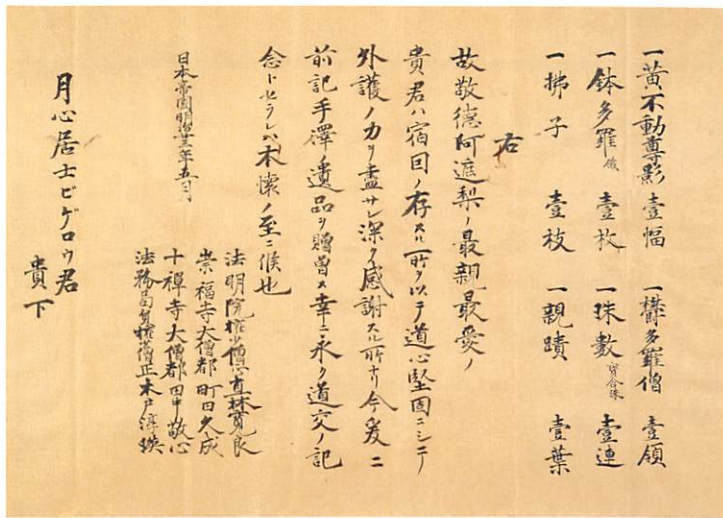 一黄不動尊影 壹幅 一欝多羅僧 壹領
一鉢多羅 鐵 壹枚 一珠數 寳合珠 壹連
一拂子 壹枝 一親蹟 壹葉
右
故敬德阿遮梨ノ最親最愛ノ
貴君ハ宿因ノ存スル所ヲ以テ道心堅固ニシテ
外護ノ力ヲ盡サレ深ク感謝スル所ナリ今爰ニ
前記手澤ノ遺品ヲ贈呈ス幸ニ永ク道交ノ記
念トセラレハ本懐ノ至ニ候也
日本帝国明治廿三年五月
法明院権少僧都直林寛良
崇福寺大僧都町田久成
十禅寺大僧都田中敬心
法務局長権僧正木戸淳瑛
月心居士ビゲロウ君
貴下